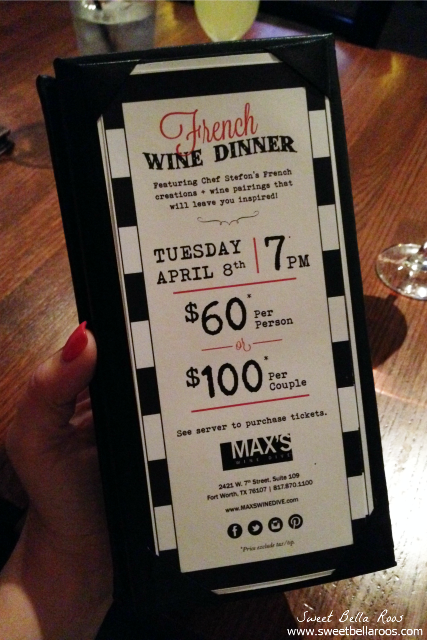 French
WINE DINNER
Featuring Chef Stefon's French
creations + wine pairings that
will leave you inspired!
TUESDAY
APRIL 8th | 7* PM
$60* Per Person
or
$100* Per Couple
See server to purchase tickets.
MAX'S
WINE DIVE
2421 W. 7th Street, Suite 109
Fort Worth, TX 76107 | 817.870.1100
www.MAXSWINEDIVE.com
*Price excludes tax/tip.
Sweet Bella Roos
www.sweetbellaroos.com